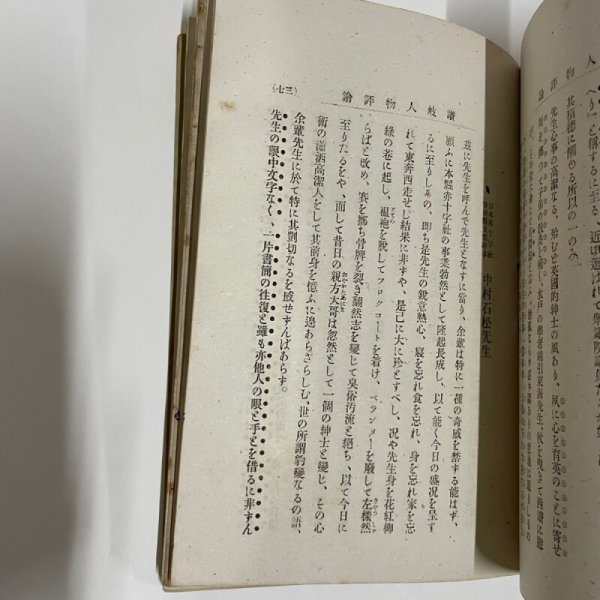 人物評論
へり」と稱するに至る、近頃選ばれて衆議院議員たり
其聲德に酬ゆる所以の一のみ、
先生心事の高潔なる、殆むど英國的紳士の風あり、夙に心を育英のことに寄せ
水戸の學者綿引東海先生、杖を曳きて西讃に遊
讃岐人物評論
(三七)
日本赤十字社
中村石松先生
玆に先生を呼んで先生となすに當り、余輩は特に一種の奇感を禁ずる能はず、
顧ふに本縣赤十字社の事業勃然として隆起長成し、以て能く今日の盛況を呈す
るに至りしもの、即ち是先生の銳意熱心、寢を忘れ食を忘れ、身を忘れ家を忘
れて東奔西走せし結果に非ずや、是已に大に珍とすべし、况や先生身を花紅柳
綠の巷に起し、縕袍を脫してフロクコートを着け、ベランメーを廢して左樣然
らばと改め、賽を擲ち骨牌を裂き翻然志を變じて臭俗汚流と絕ち、以て今日に
至りたるをや、而して昔日の親方大哥は忽然として一個の紳士と變じ、その心
術の瀟洒高潔人をして其前身を憶ふに遑あらざらしむ、世の所謂豹變なるの語、
余輩先生に於て特に其剴切なるを感せずんばあらず。
先生の眼中文字なく、一片書簡の往復と雖も亦他人の眼と手とを借るに非ずん